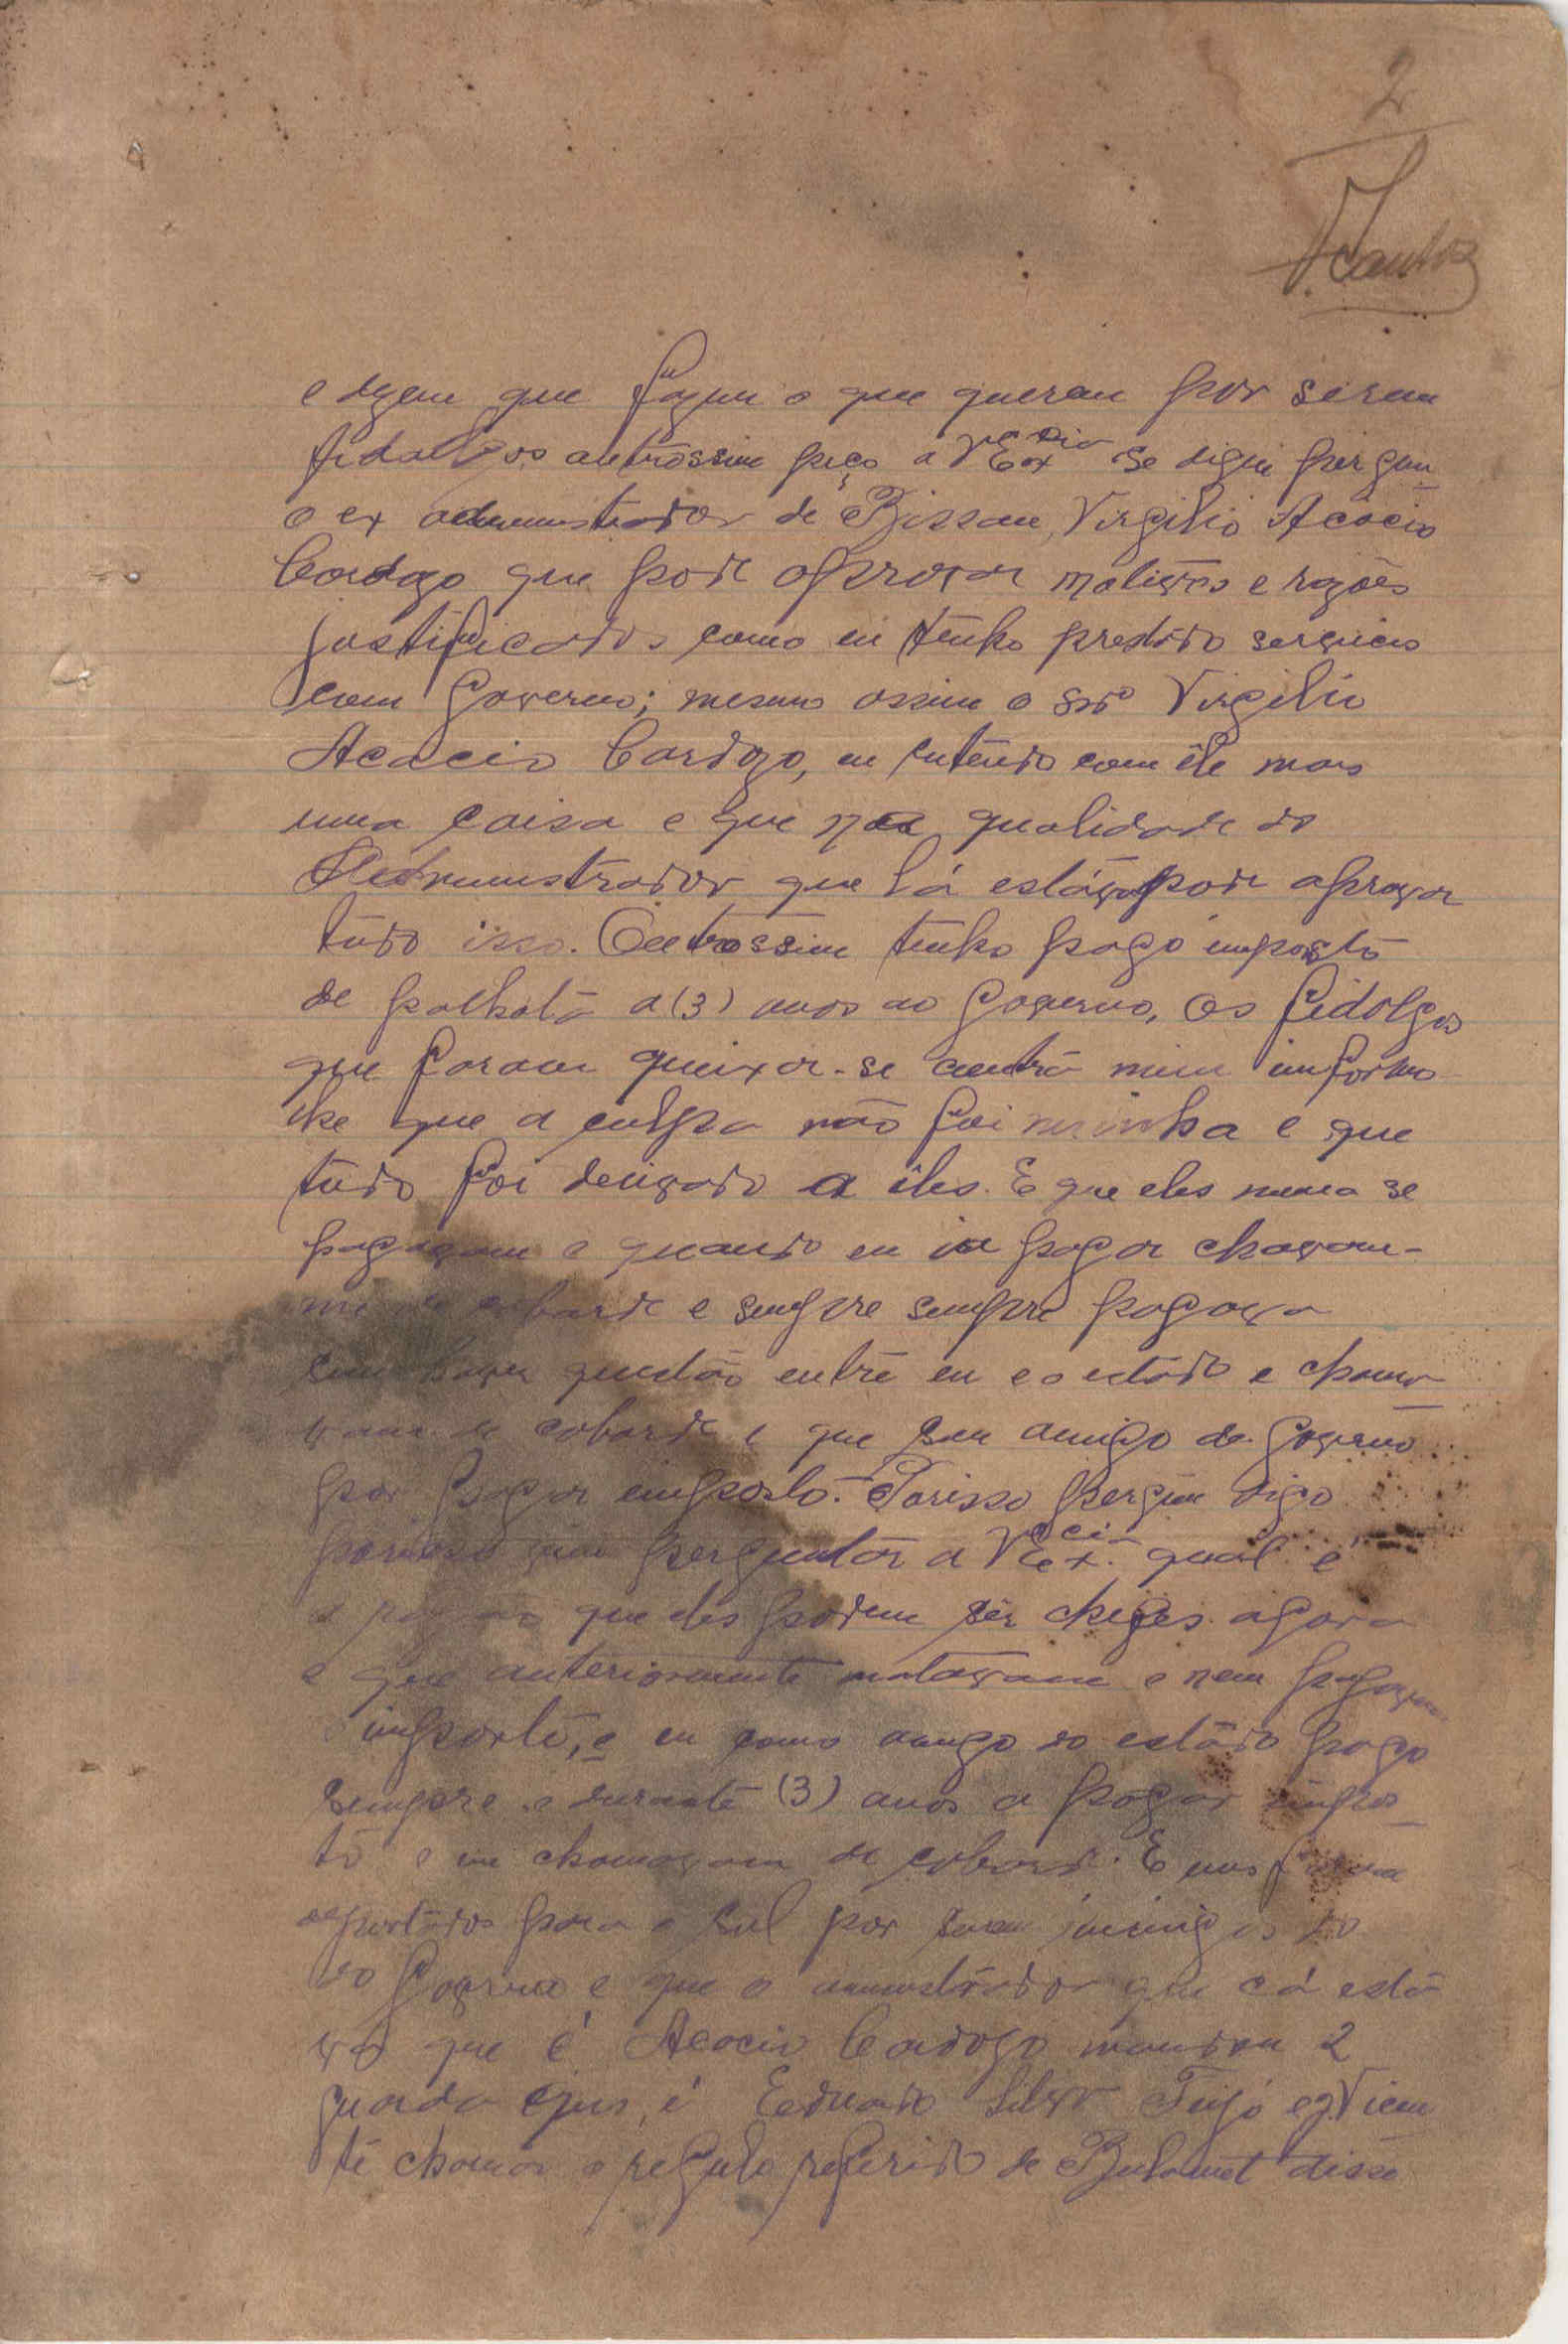 2
V. Santos
e dizem que fazem o que queram por serem
fidalgos outrossim peço a VEx.cia se digne pergun
o ex administrador de Bissau, Virgilio Acácio
Cardozo que pode aprovar motivos e razões
justificados como eu tenho prestado serviços
com Governo; mesmo assim o snr Virgilio
Acacio Cardozo, eu entendo com êle mais
uma coisa e que na qualidade do
Administrador que lá estáva pode aprovar
tudo isso. Outrossim tenho pago imposto
de palhota a (3) anos ao Governo, os fidalgos
que foram queixar-se contra mim informo
lhe que a culpa não foi minha e que
tudo foi devido a êles. E que eles nunca se
pagavam e quando eu ia pagar chavam-
me de cobarde e sempre sempre pagava
sem haver questão entre eu e o estado e chama
vam de cobarde e que sou amigo de Governo
por pagar imposto. Porisso digo
porisso perguntar a VEx.cia qual é
a razão que eles podem sêr chefes agora
e que anteriormente matavam e nem pagavam
imposto, e eu como amigo do estado pago
sempre e durante (3) anos a pagar impos
to e me chamavam de cobarde. E uns foram
deportados para o sul por serem inimigos do
do Governo e que o administrador que cá está
va que é Acacio Cardozo mandou 2
guarda é Eduardo Silva Teijó e Vicen
te chamar o regulo referido de Bulamet disse